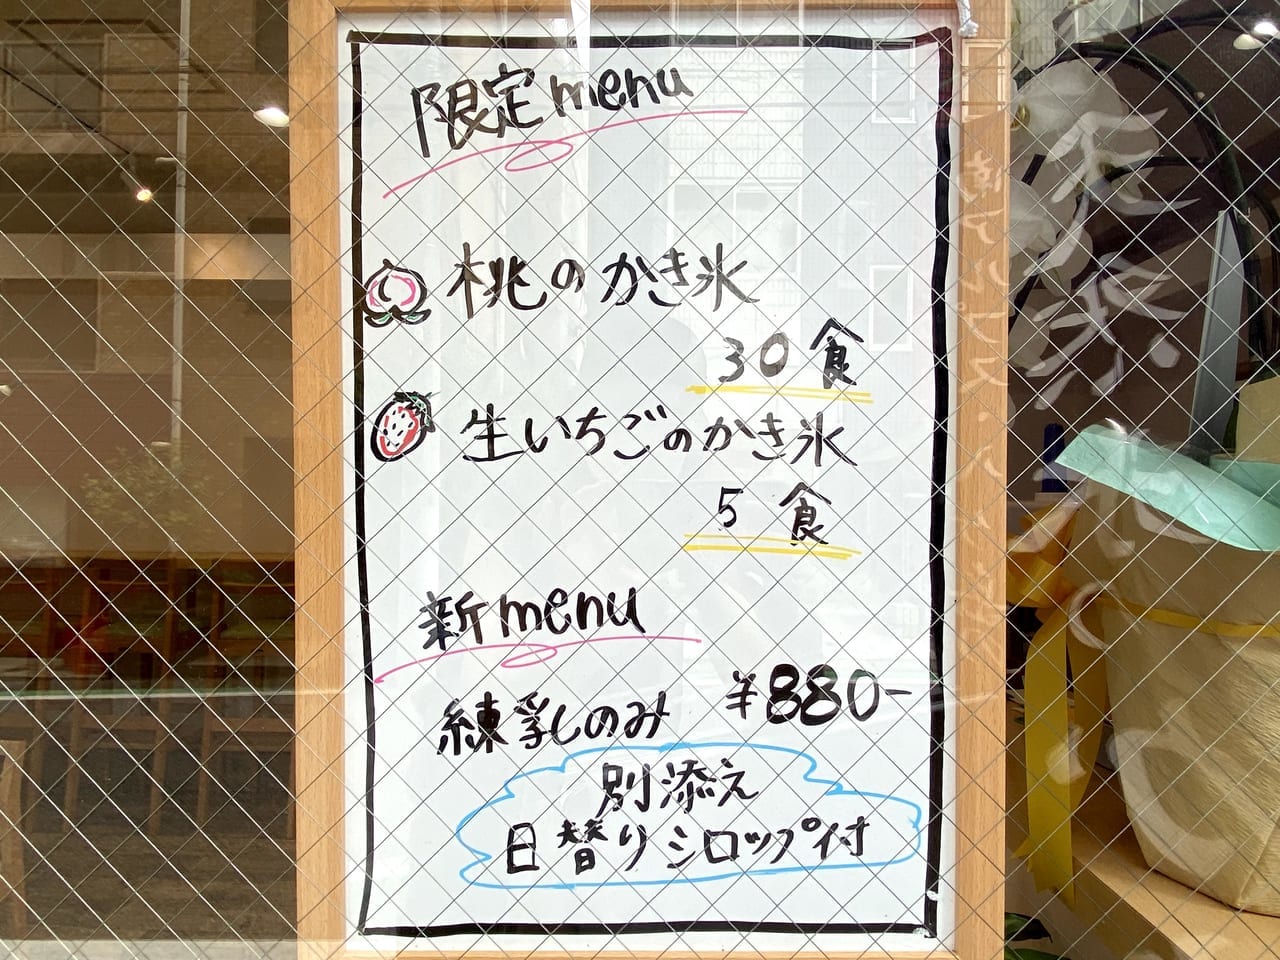 限定menu
桃のかき氷
30食
生いちごのかき氷
5食
新menu
練乳のみ ¥880-
別添え
日替りシロップ付